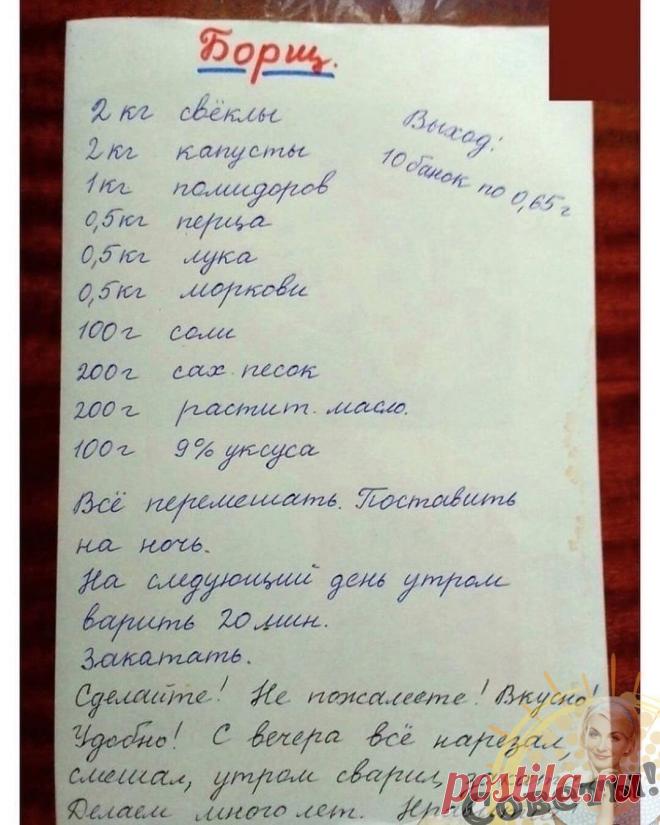 Борщ.
2 кг свёклы
2 кг капусты
1 кг помидоров
0,5 кг перца
0,5 кг лука
0,5 кг моркови
100 г соли
200 г сах. песок
200 г растит. масло.
100 г 9% уксуса
Выход:
10 банок по 0,65 г
Всё перемешать. Поставить
на ночь.
На следующий день утром
варить 20 мин.
Закатать.
Сделайте! Не пожалеете! Вкусно!
Удобно! С вечера всё нарезал,
смешал, утром сварил,
Делаем много лет.
Советы!
postila.ru